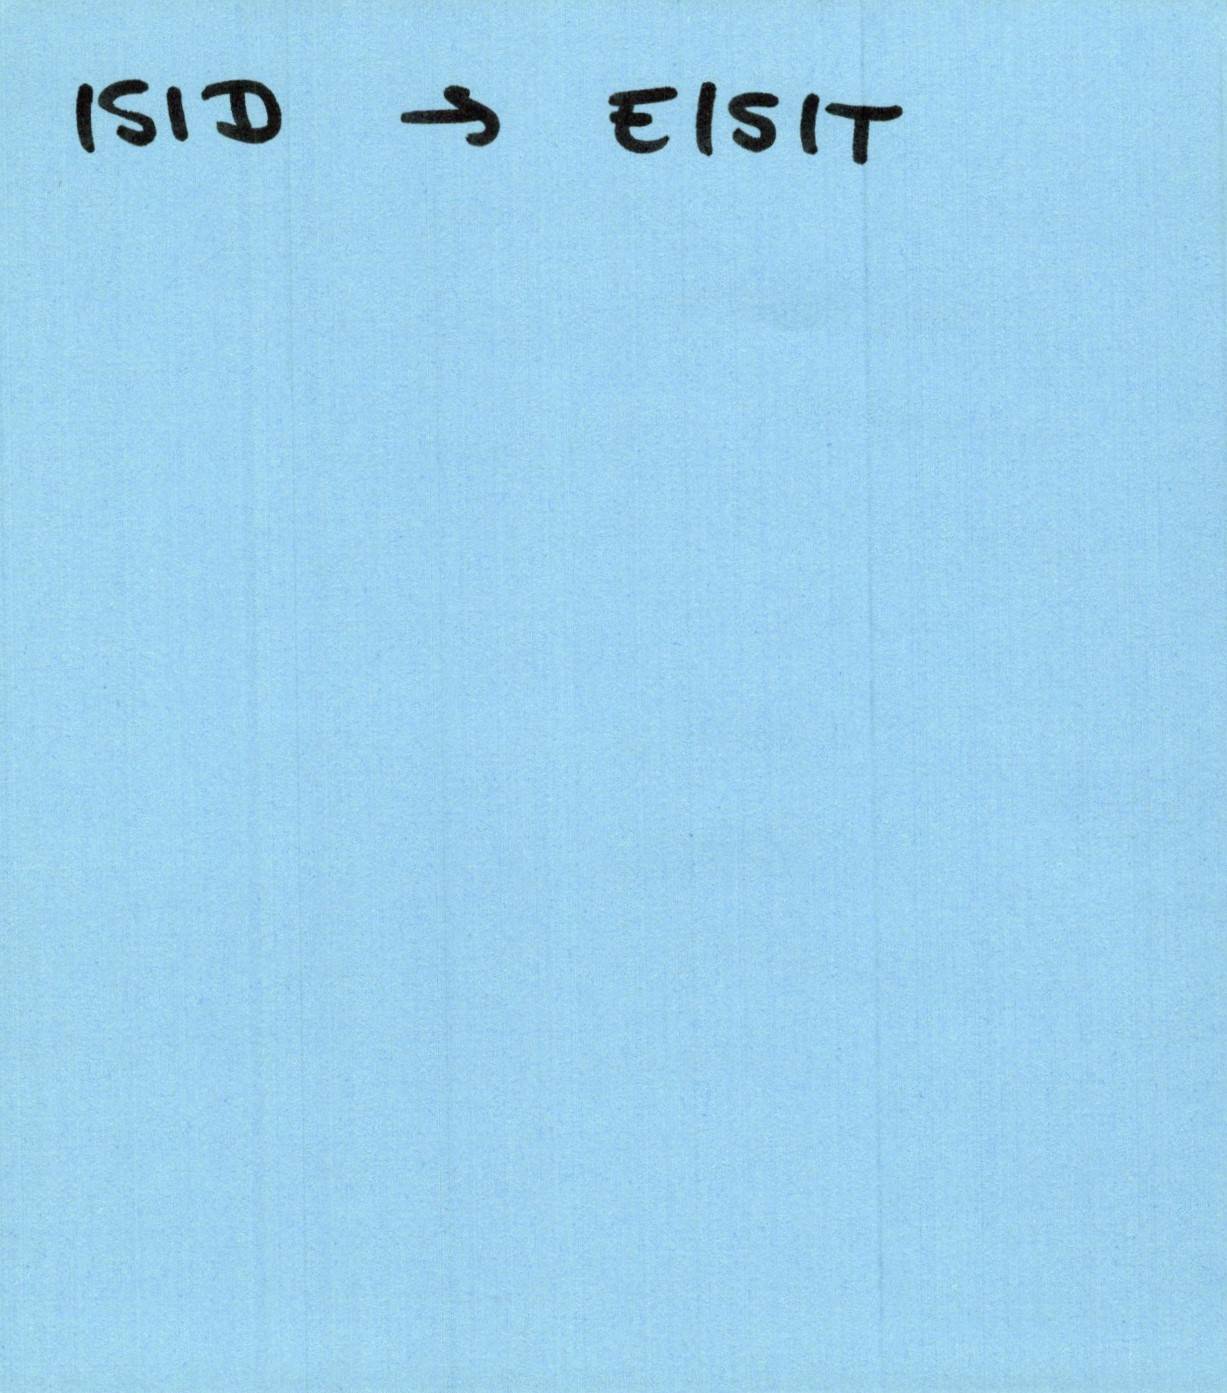 ISID → EISIT